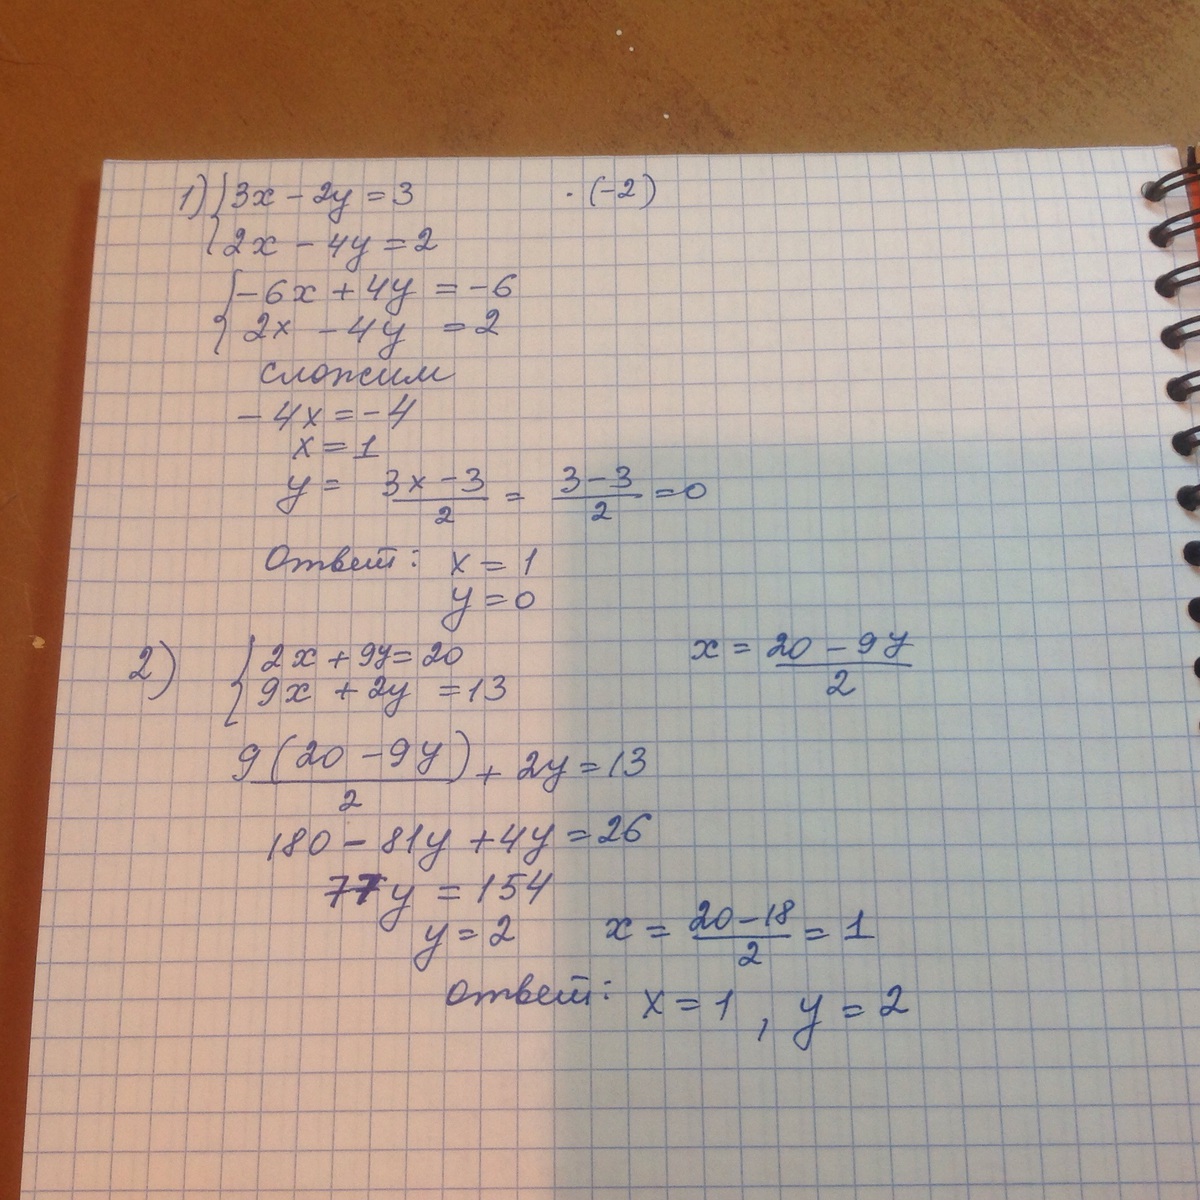 1) { 3x - 2y = 3 · (-2)
2x - 4y = 2
{ -6x + 4y = -6
2x - 4y = 2
сложим
-4x = -4
x = 1
y = (3x - 3)/2 = (3 - 3)/2 = 0
Ответ: x = 1
y = 0
2) { 2x + 9y = 20 x = (20 - 9y)/2
9x + 2y = 13
9(20 - 9y)/2 + 2y = 13
180 - 81y + 4y = 26
77y = 154
y = 2 x = (20 - 18)/2 = 1
Ответ: x = 1, y = 2